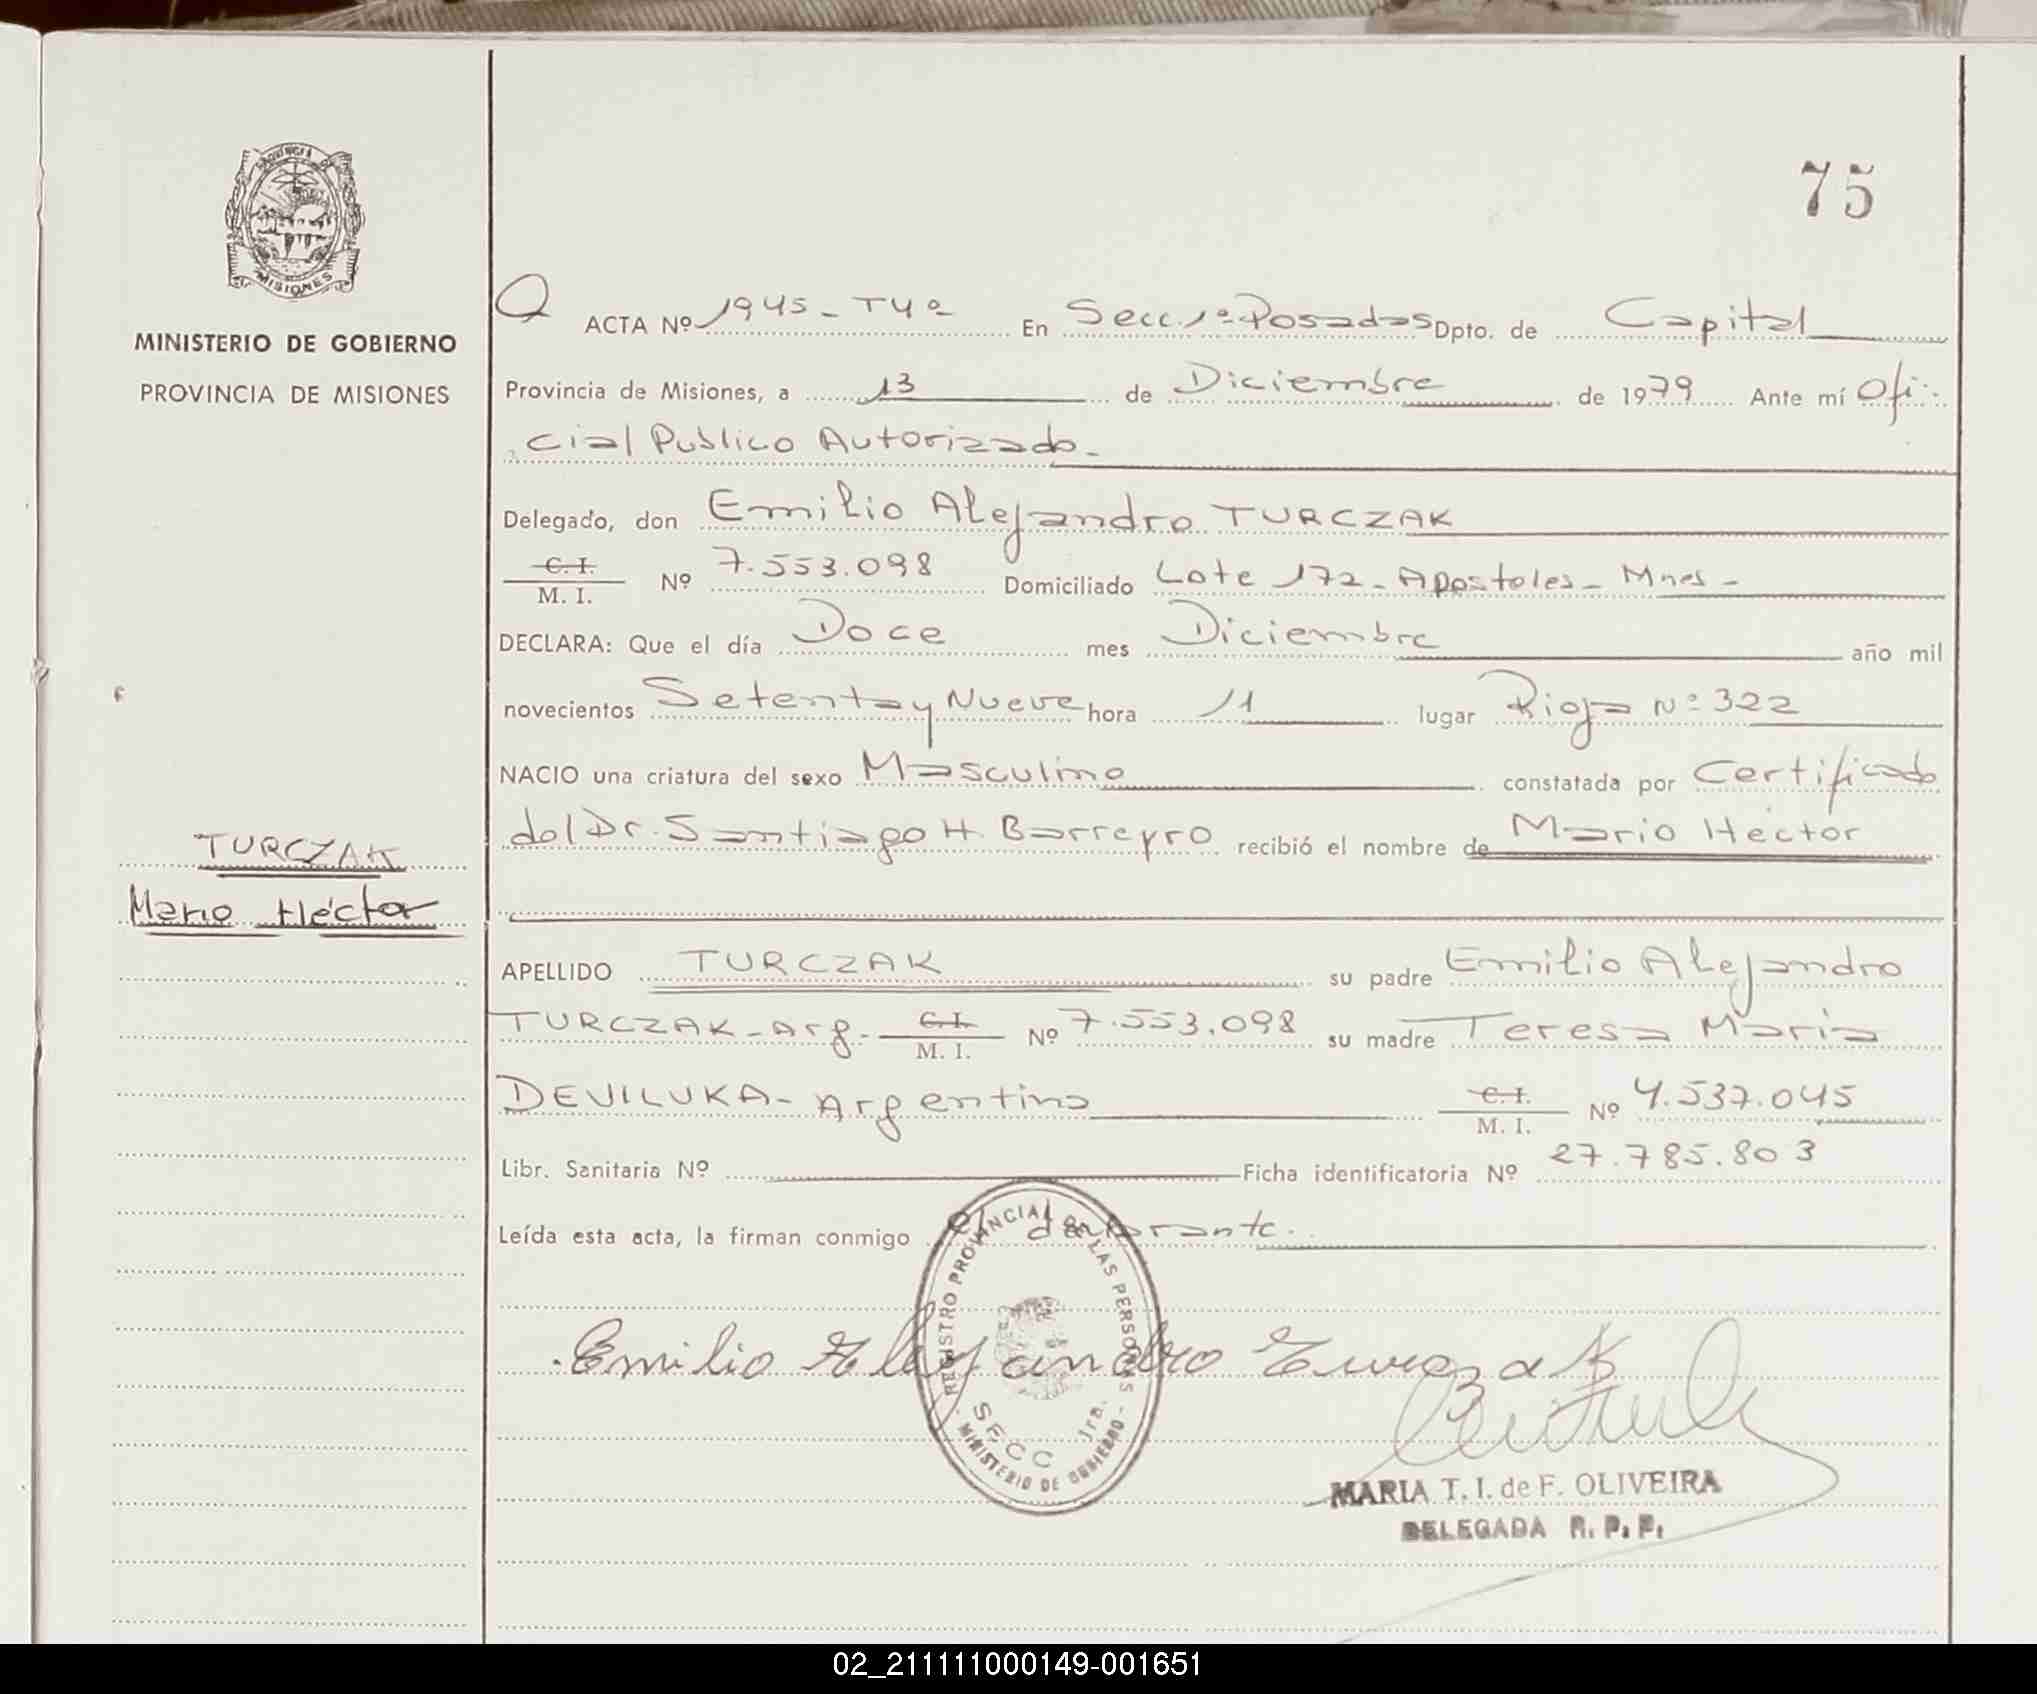 75
PROVINCIA DE
MISIONES
MINISTERIO DE GOBIERNO
PROVINCIA DE MISIONES
ACTA Nº 1945 - T4º En Secc. 1ª Posadas Dpto. de Capital
Provincia de Misiones, a 13 de Diciembre de 1979 Ante mí Ofi-
cial Publico Autorizado.
Delegado, don Emilio Alejandro TURCZAK
C. I.
M. I. Nº 7.553.098 Domiciliado Lote 172 - Apostoles - Mnes -
DECLARA: Que el día Doce mes Diciembre año mil
novecientos Setenta y Nueve hora 11 lugar Rioja Nº 322
NACIO una criatura del sexo Masculino constatada por Certificado
del Dr. Santiago H. Barreyro recibió el nombre de Mario Héctor
TURCZAK
Mario Héctor
APELLIDO TURCZAK su padre Emilio Alejandro
TURCZAK - Arg. - C. I.
M. I. Nº 7.553.098 su madre Teresa Maria
DEVILUKA - Argentina C. I.
M. I. Nº 4.537.045
Libr. Sanitaria Nº Ficha identificatoria Nº 27.785.803
Leída esta acta, la firman conmigo el declarante.
REGISTRO PROVINCIAL DE LAS PERSONAS
SECC 1ra.
- MINISTERIO DE GOBIERNO -
Emilio Alejandro Turczak
MARIA T. I. de F. OLIVEIRA
DELEGADA R. P. P.
02_211111000149-001651